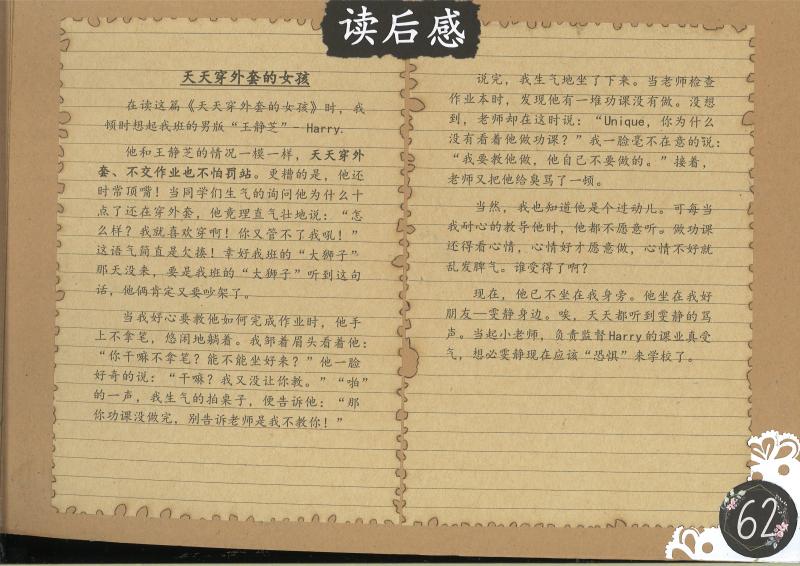 读后感
天天穿外套的女孩
在读这篇《天天穿外套的女孩》时，我
顿时想起我班的男版“王静芝”- Harry.
他和王静芝的情况一模一样，天天穿外
套、不交作业也不怕罚站。更糟的是，他还
时常顶嘴！当同学们生气的询问他为什么十
点了还在穿外套，他竟理直气壮地说：“怎
么样？我就喜欢穿啊！你又管不了我吼！”
这语气简直是欠揍！幸好我班的“大狮子”
那天没来，要是我班的“大狮子”听到这句
话，他俩肯定又要吵架了。
当我好心要教他如何完成作业时，他手
上不拿笔，悠闲地躺着。我邹着眉头看着他：
“你干嘛不拿笔？能不能坐好来？”他一脸
好奇的说：“干嘛？我又没让你教。”“啪”
的一声，我生气的拍桌子，便告诉他：“那
你功课没做完，别告诉老师是我不教你！”
说完，我生气地坐了下来。当老师检查
作业本时，发现他有一堆功课没有做。没想
到，老师却在这时说：“Unique，你为什么
没有看着他做功课？”我一脸毫不在意的说：
“我要教他做，他自己不要做的。”接着，
老师又把他给臭骂了一顿。
当然，我也知道他是个过动儿。可每当
我耐心的教导他时，他都不愿意听。做功课
还得看心情，心情好才愿意做，心情不好就
乱发脾气。谁受得了啊？
现在，他已不坐在我身旁。他坐在我好
朋友—雯静身边。唉，天天都听到雯静的骂
声。当起小老师，负责监督Harry的课业真受
气，想必雯静现在应该“恐惧”来学校了。
62